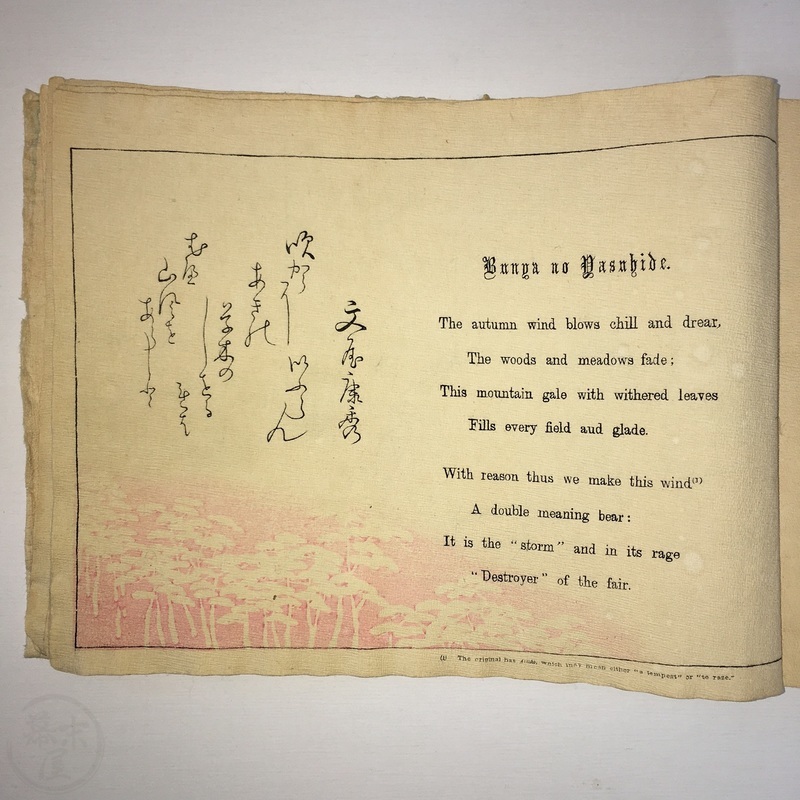 文屋康秀
吹からに
あきの
草木の
しをるれは
むへ
山風を
あらしと
いふらん
Bunya no Yasuhide.
The autumn wind blows chill and drear,
The woods and meadows fade;
This mountain gale with withered leaves
Fills every field aud glade.
With reason thus we make this wind(1)
A double meaning bear:
It is the "storm" and in its rage
"Destroyer" of the fair.
(1) The original has which may mean either "a tempest" or "to raze."
幕末屋